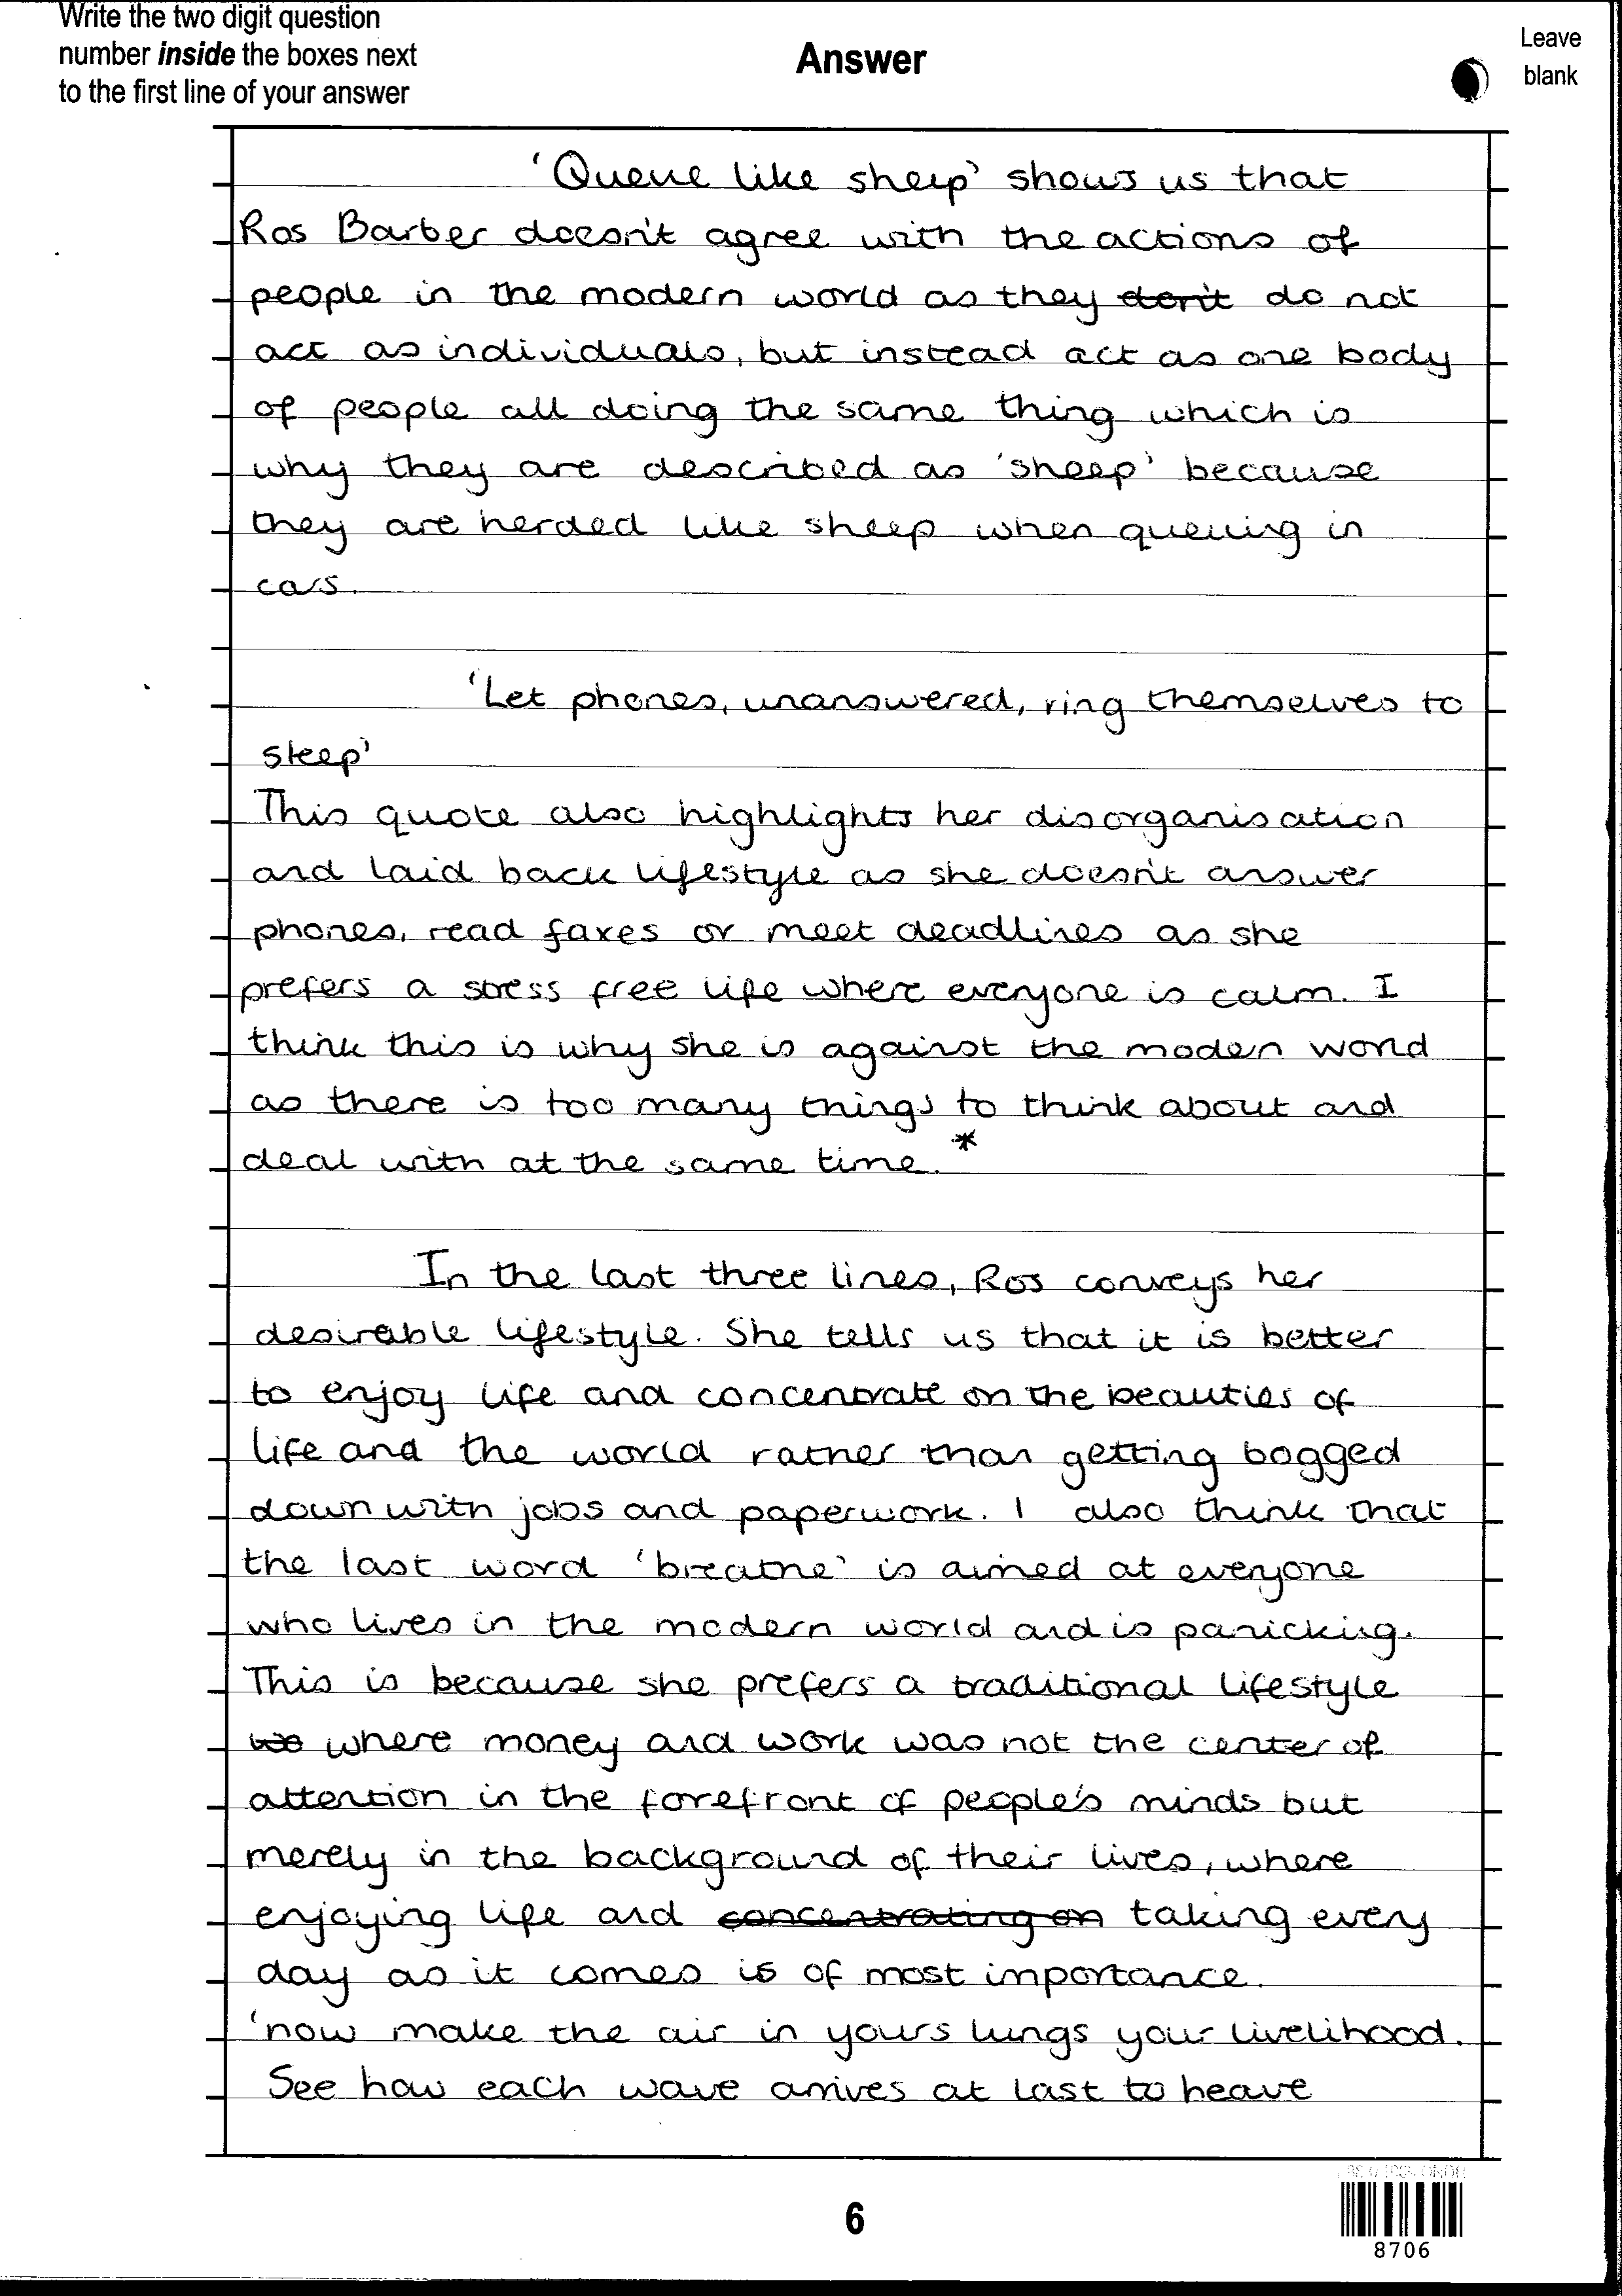 Write the two digit question
number inside the boxes next
to the first line of your answer
Answer
Leave
blank
'Queue like sheep' shows us that
Ros Barber doesn't agree with the actions of
people in the modern world as they don't do not
act as individuals, but instead act as one body
of people all doing the same thing which is
why they are described as 'sheep' because
they are herded like sheep when queuing in
cars.
'Let phones, unanswered, ring themselves to
sleep'
This quote also highlights her disorganisation
and laid back lifestyle as she doesn't answer
phones, read faxes or meet deadlines as she
prefers a stress free life where everyone is calm. I
think this is why she is against the modern world
as there is too many things to think about and
deal with at the same time.*
In the last three lines, Ros conveys her
desirable lifestyle. She tells us that it is better
to enjoy life and concentrate on the beauties of
life and the world rather than getting bogged
down with jobs and paperwork. I also think that
the last word 'breathe' is aimed at everyone
who lives in the modern world and is panicking.
This is because she prefers a traditional lifestyle
where money and work was not the center of
attention in the forefront of people's minds but
merely in the background of their lives, where
enjoying life and concentrating on taking every
day as it comes is of most importance.
'now make the air in yours lungs your livelihood.
See how each wave arrives at last to heave
6
8706